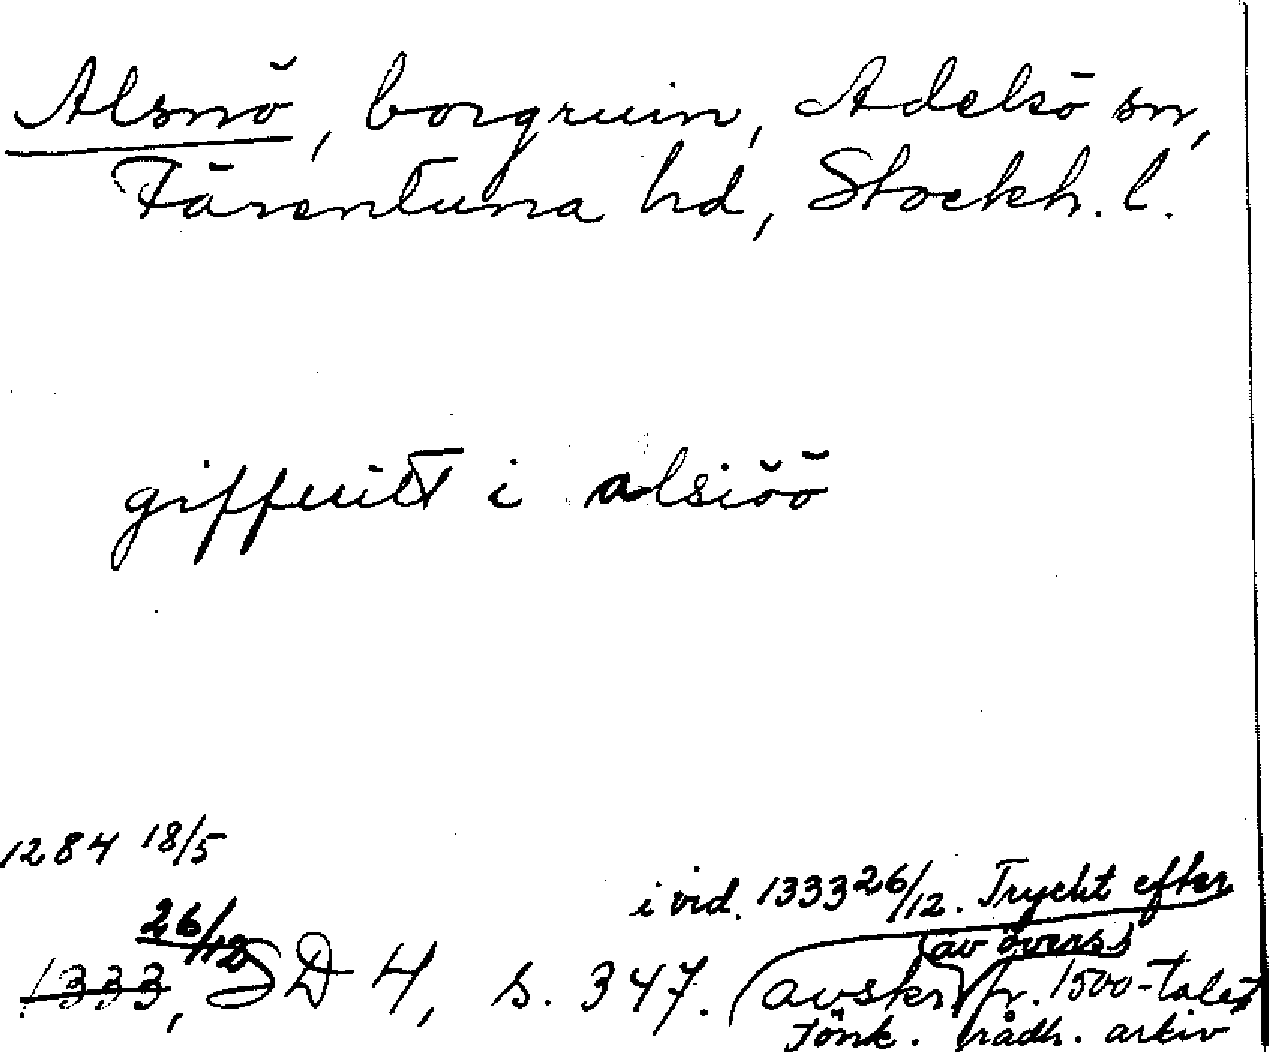 Alsnö, borgruin, Adelsö sn,
Färentuna hd, Stockh. l.
giffuitt i alsiöö
1284 18/5
i vid. 1333 26/12. Tryckt efter
1333 26/12, SD 4, s. 347. (avskr (av övers) fr. 1500-talet
Jönk. rådh. arkiv